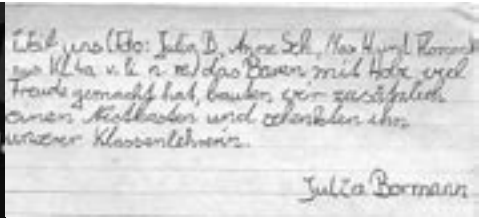 Weil uns (Foto: Julia B, Anne Sch, Max H und
aus Kl. 4a v. l. n. re) das Bauen mit Holz viel
Freude gemacht hat, bauten wir zusätzlich
einen Nistkasten und schenkten ihn
unserer Klassenlehrerin.
Julia Bormann